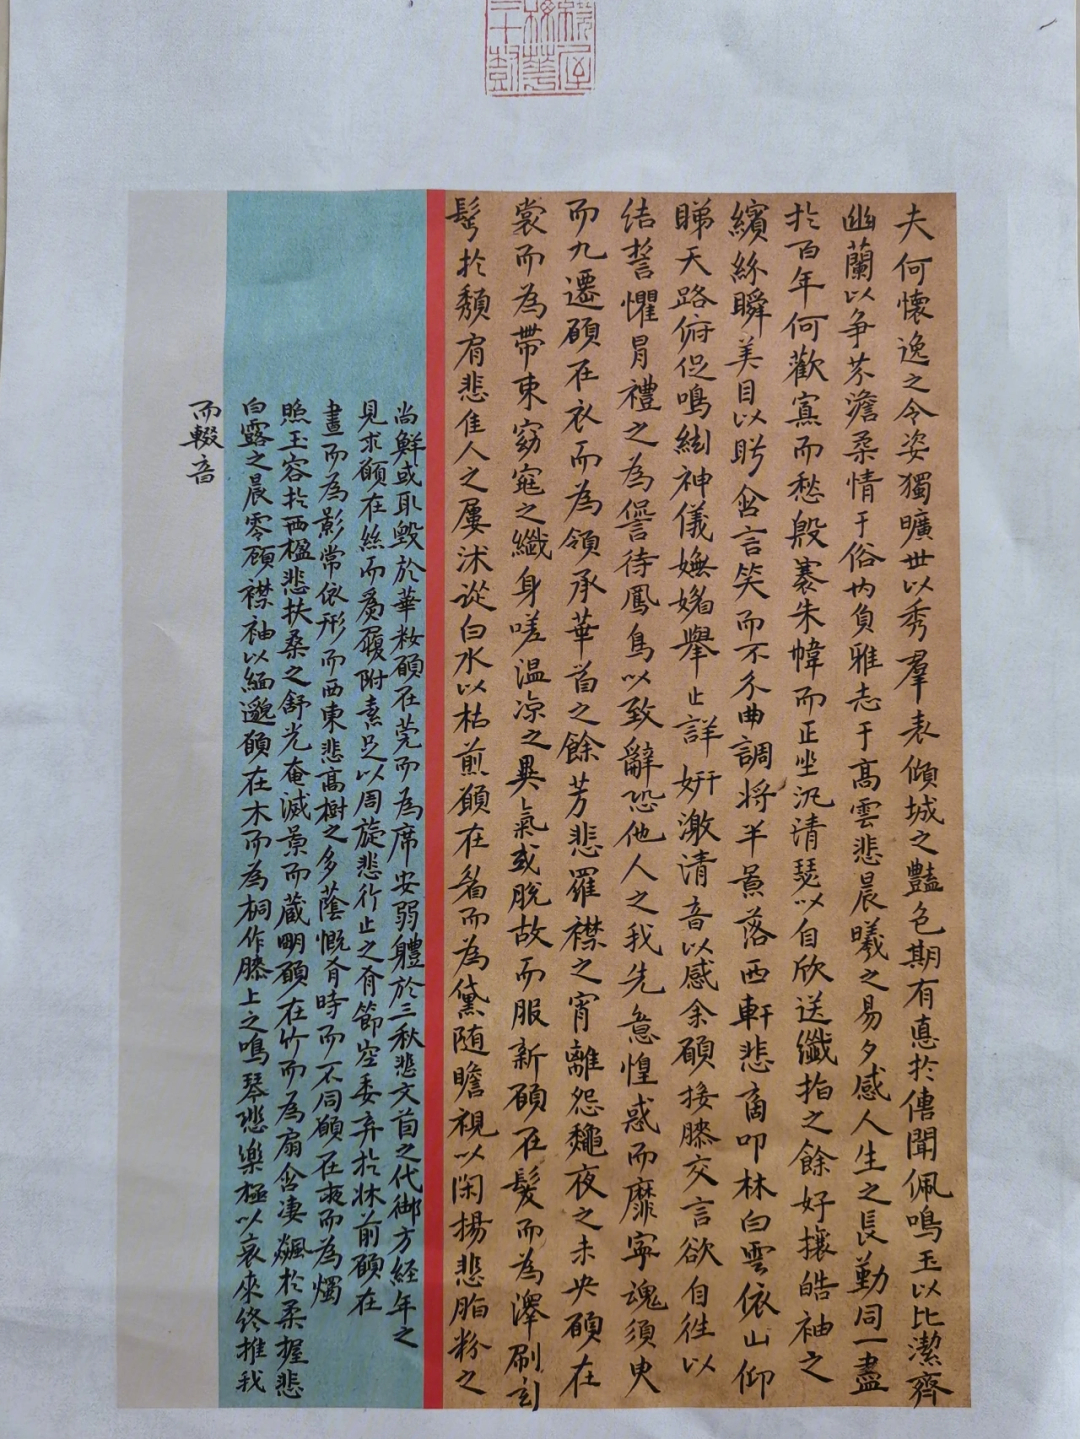 夫何懷逸之令姿獨曠世以秀羣表傾城之豔色期有悳於傳聞佩鳴玉以比潔齊
幽蘭以争芬澹柔情于俗内負雅志于高雲悲晨曦之易夕感人生之長勤同一盡
於百年何歡寡而愁殷褰朱幃而正坐汎清瑟以自欣送纖指之餘好攘皓袖之
繽紛瞬美目以盻含言笑而不分曲調将半景落西軒悲商叩林白雲依山仰
睇天路俯促鳴絃神儀嫵媚舉止詳妍激清音以感余願接膝交言欲自往以
結誓懼冒禮之為諐待鳳鳥以致辭恐他人之我先意惶惑而靡寧魂須臾
而九遷願在衣而為領承華首之餘芳悲羅襟之宵離怨龝夜之未央願在
裳而為帶束窈窕之纖身嗟温凉之異氣或脱故而服新願在髮而為澤刷玄
髩於頽肩悲佳人之屢沐從白水以枯煎願在眉而為黛随瞻視以閑揚悲脂粉之
尚鮮或取毀於華妝願在莞而為席安弱體於三秋悲文茵之代御方経年之
見求願在絲而為履附素足以周旋悲行止之有節空委弃於牀前願在
晝而為影常依形而西東悲高樹之多蔭慨有時而不同願在夜而為燭
照玉容於兩楹悲扶桑之舒光奄滅景而蔵明願在竹而為扇含凄飆於柔握悲
白露之晨零顧襟袖以緬邈願在木而為桐作膝上之鳴琴悲樂極以哀來終推我
而輟音